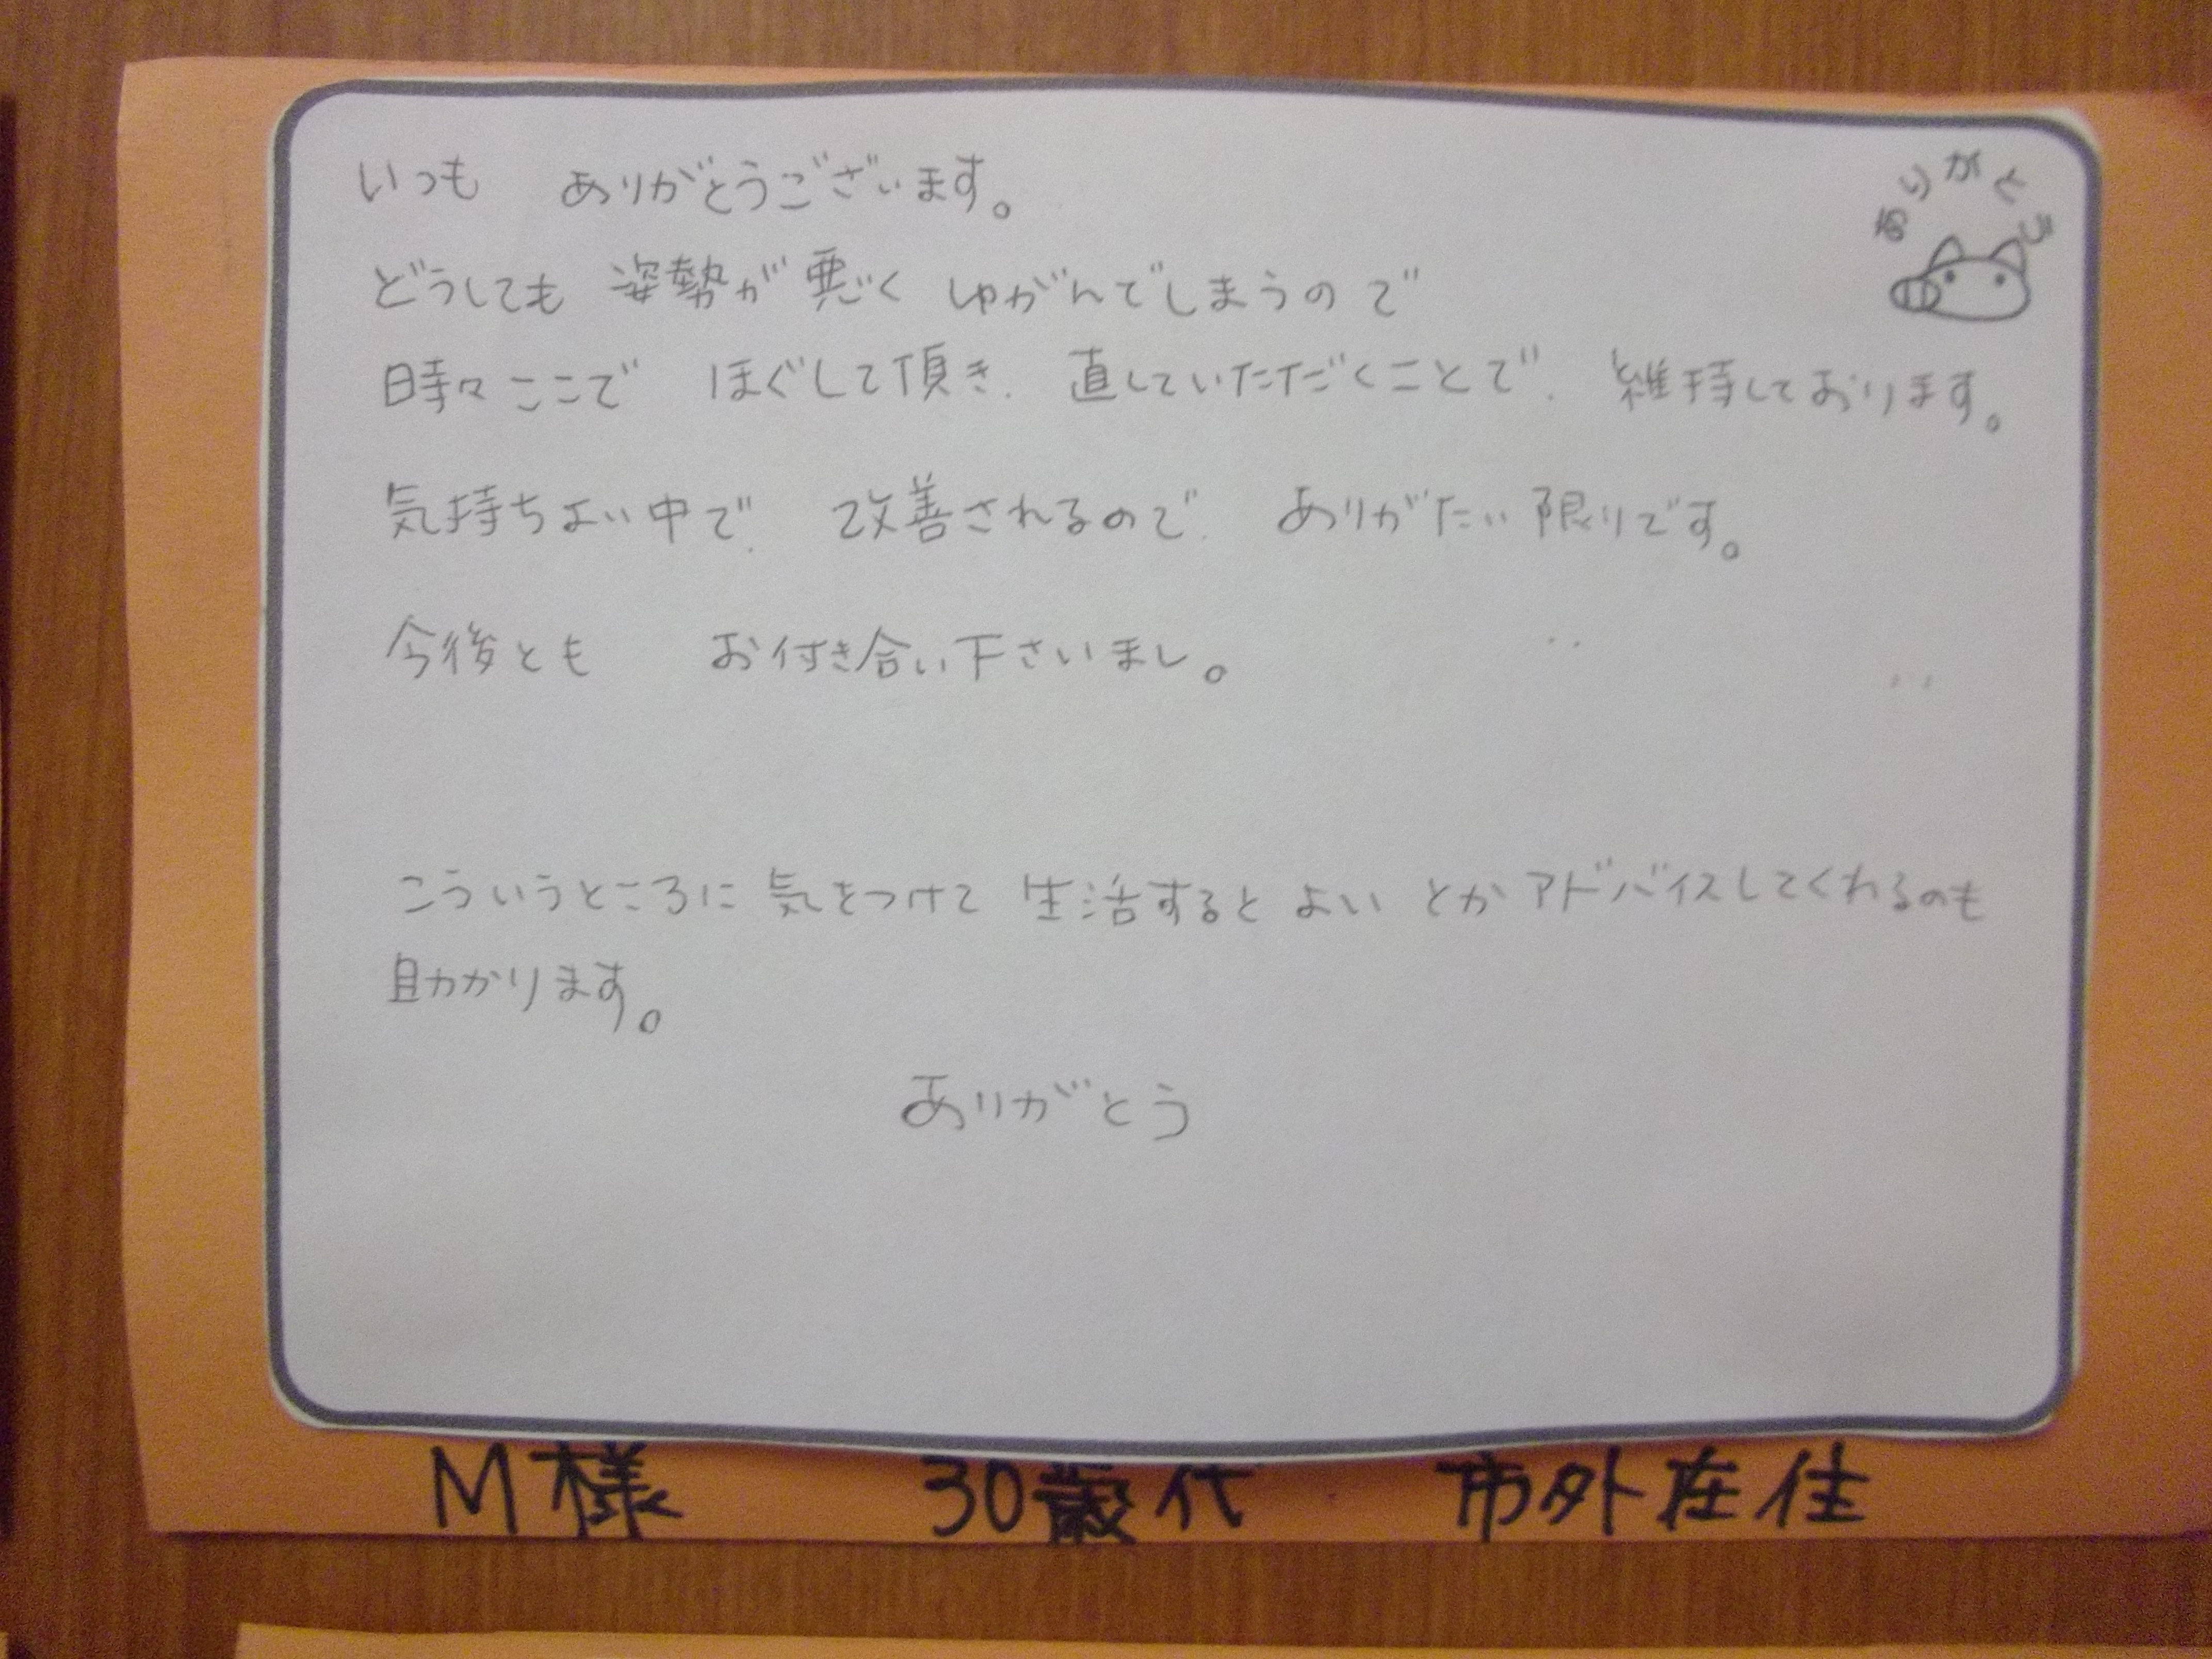 いつも ありがとうございます。
ありがとう
どうしても 姿勢が悪く ゆがんでしまうので
時々ここで ほぐして頂き、直していただくことで、維持しております。
気持ちよい中で、改善されるので、ありがたい限りです。
今後とも お付き合い下さいまし。
こういうところに 気をつけて 生活すると よい とか アドバイスしてくれるのも
助かります。
ありがとう
M様 30歳代 市外在住